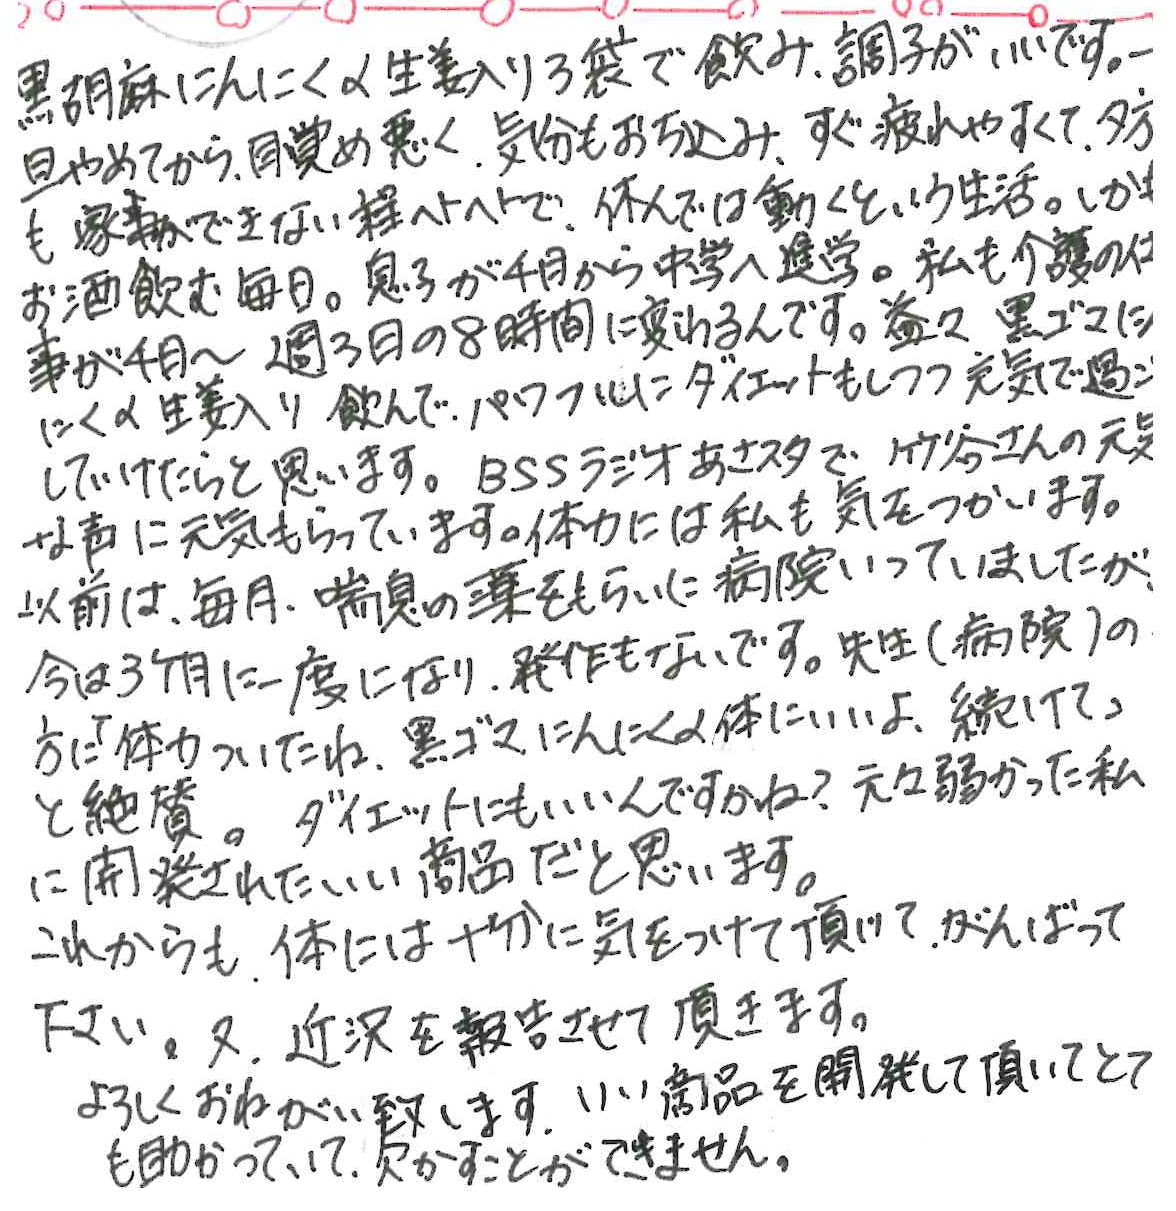 黒胡麻にんにくα生姜入り3袋で飲み、調子がいいです。一
旦やめてから、目覚め悪く、気分もおち込み、すぐ疲れやすくて、夕方
も家事ができない程ヘトヘトで、休んでは動くという生活。しかも
お酒飲む毎日。息子が4月から中学へ進学。私も介護の仕
事が4月〜週3日の8時間に変わるんです。益々黒ゴマにん
にくα生姜入り飲んで、パワフルにダイエットもしつつ元気で過ご
していけたらと思います。BSSラジオあさスタで、竹谷さんの元気
な声に元気もらっています。体力には私も気をつかいます。
以前は、毎月、喘息の薬をもらいに病院いっていましたが、
今は3ケ月に一度になり、発作もないです。先生(病院)の
方に「体力ついたね、黒ゴマにんにくα体にいいよ、続けて」
と絶賛。ダイエットにもいいんですかね?元々弱かった私
に開発されたいい商品だと思います。
これからも、体には十分に気をつけて頂いて、がんばって
下さい。又、近況を報告させて頂きます。
よろしくおねがい致します。いい商品を開発して頂いてとて
も助かっていて、欠かすことができません。